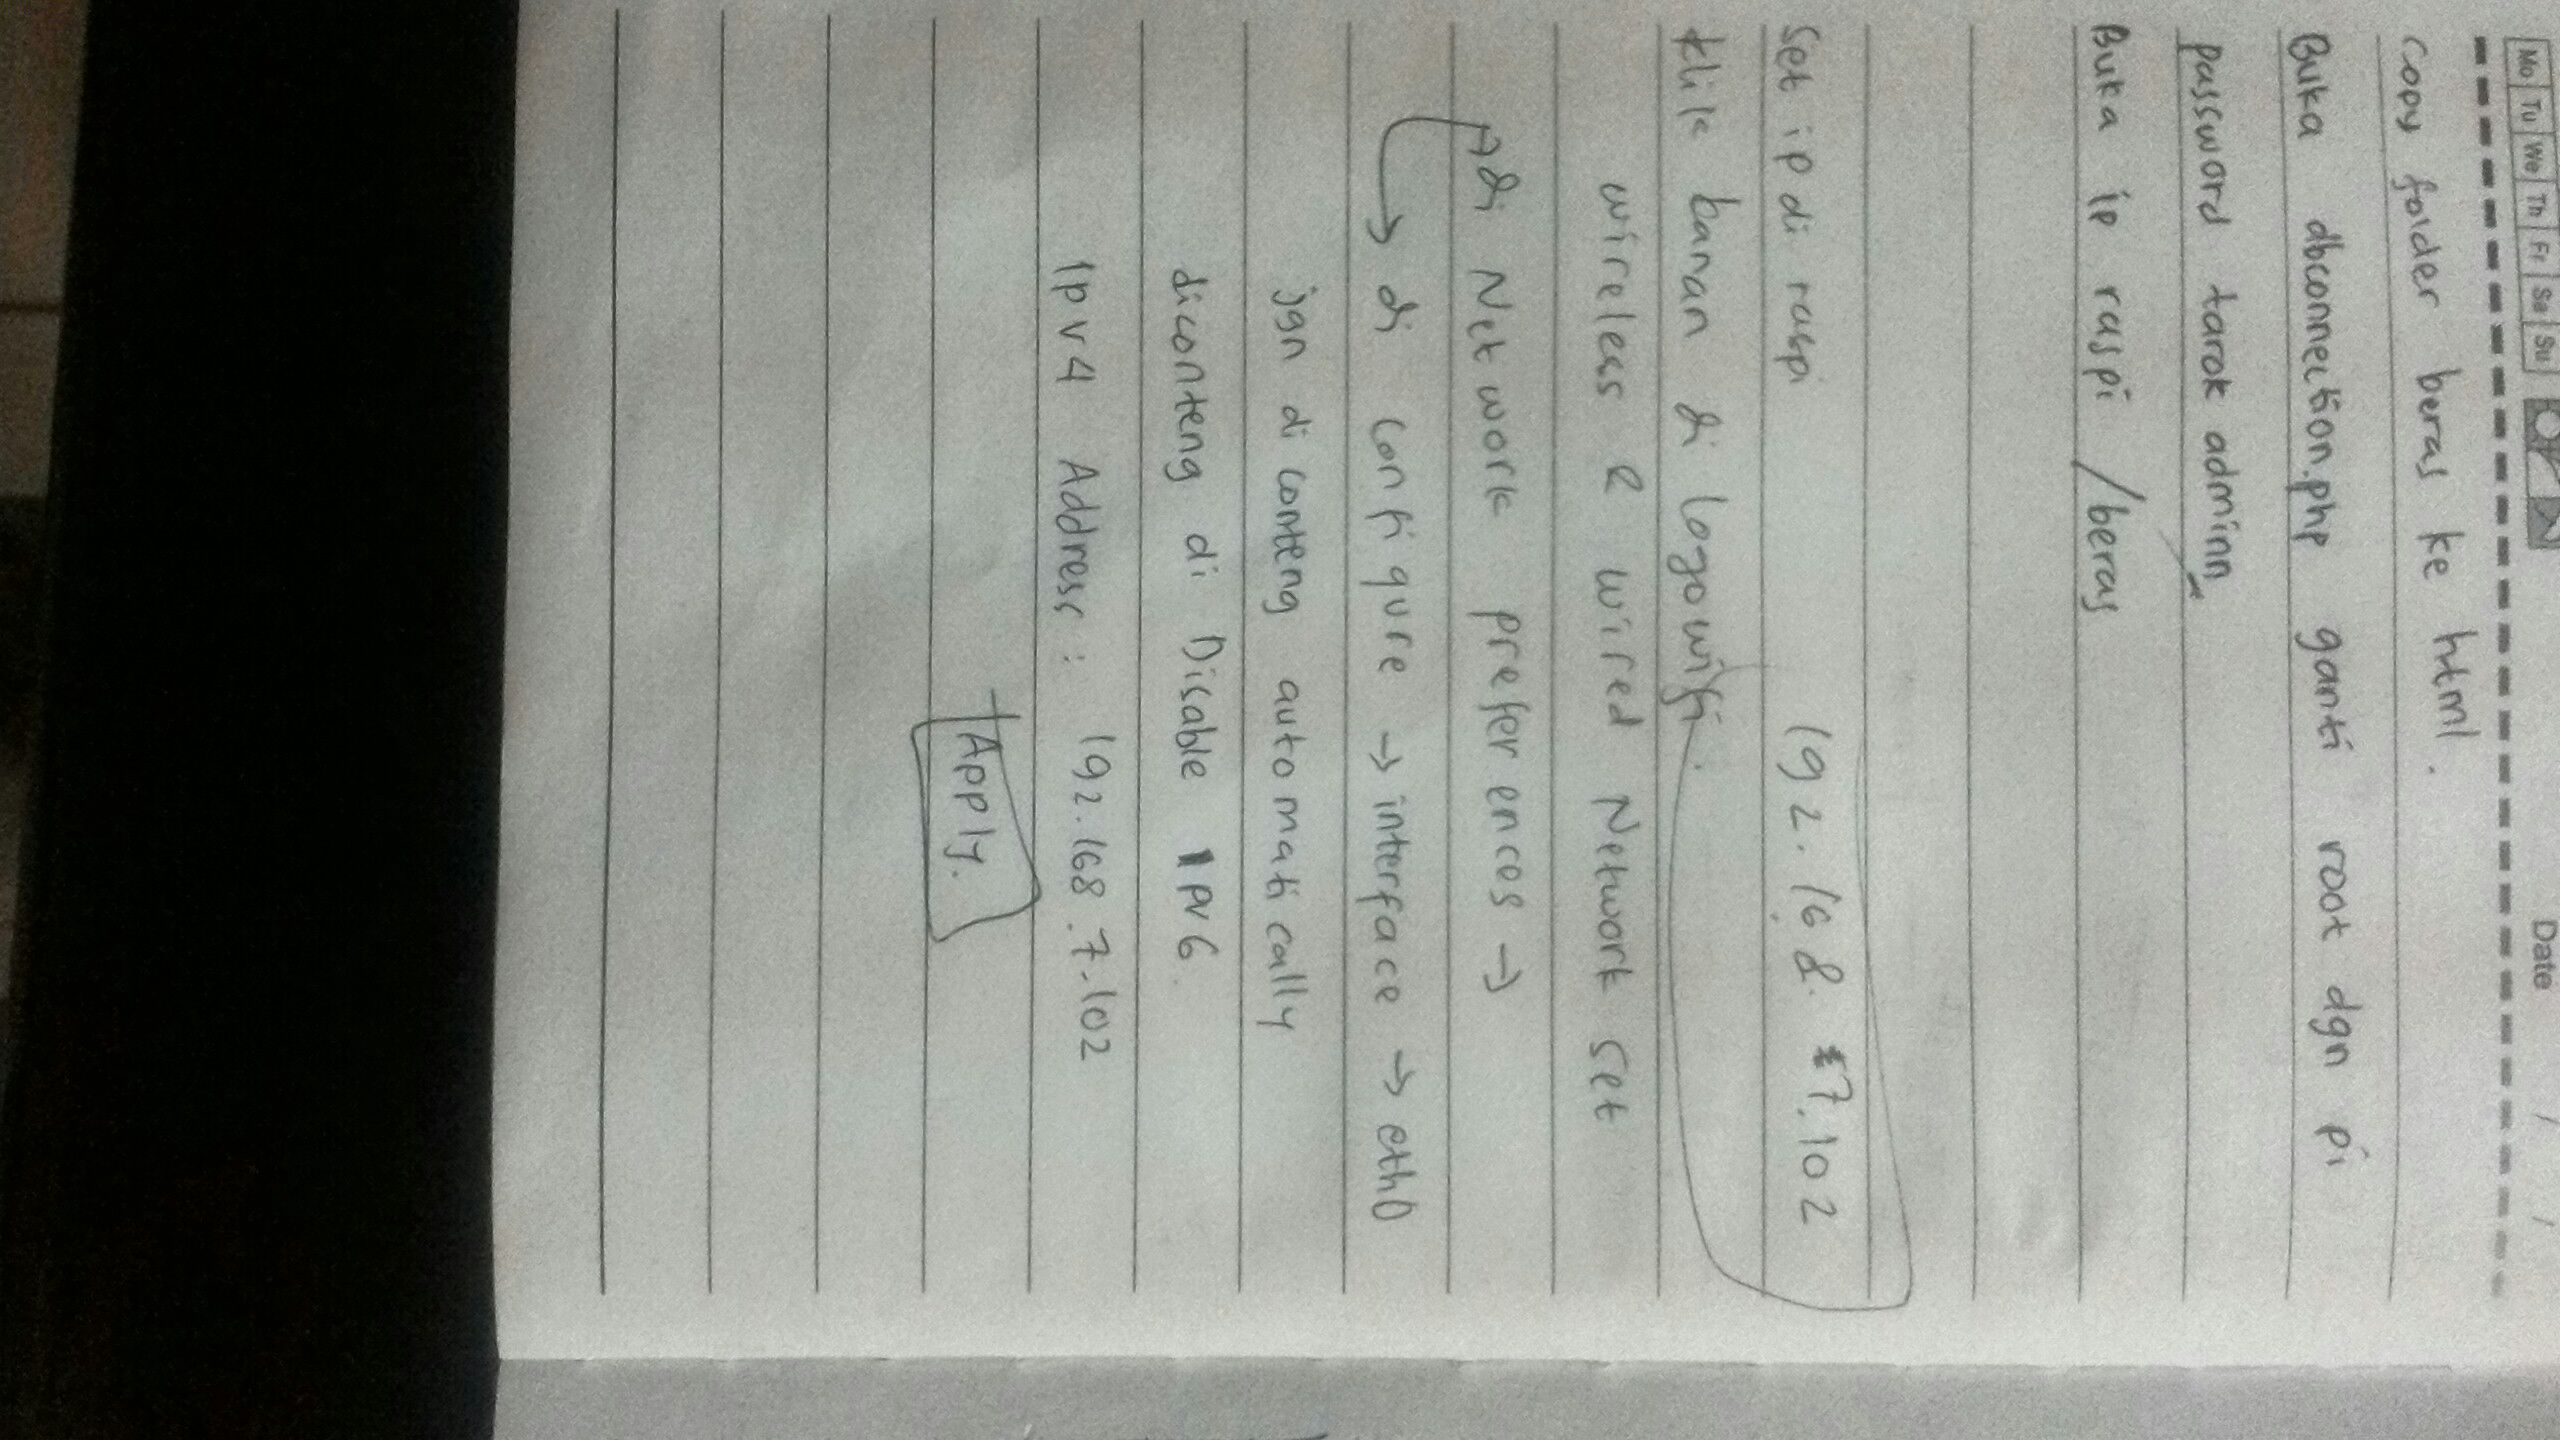 Mo Tu We Th Fr Sa Su
Date / /
Copy folder beras ke html.
Buka dbconnection.php ganti root dgn pi
password tarok admin
Buka ip raspi /beras
Set ip di raspi 192.168.7.102
klik kanan di logo wifi.
wireless & wired Network set
di Network preferences →
→ di configure → interface → eth0
jgn di conteng automatically
diconteng di Disable IPv6
Ipv4 Address : 192.168.7.102
Apply.